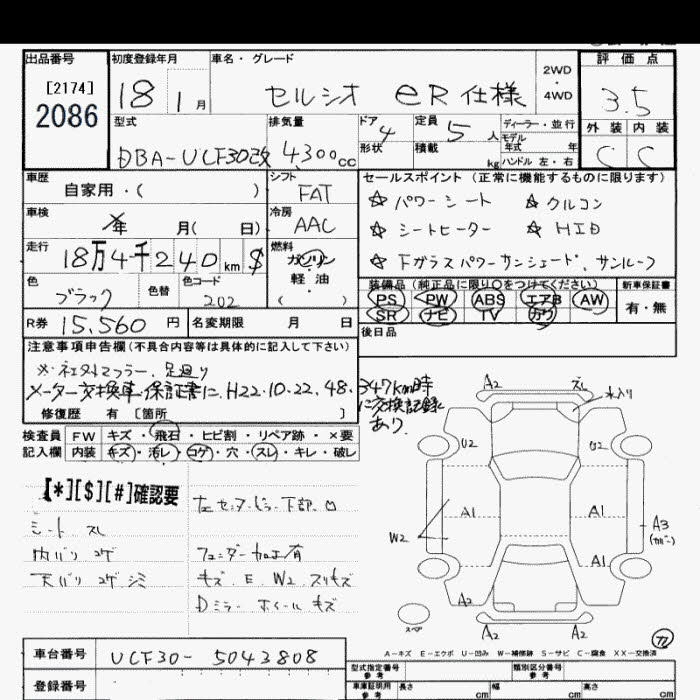 出品番号 初度登録年月 車名・グレード 評価点
[2174]
2086
18 1月 セルシオ eR仕様 2WD・4WD 3.5
型式 排気量 ドア 定員 ディーラー・並行 外装 内装
DBA-UCF30改 4300cc 4 5人 モデル年式 年 C C
形状 積載 kg ハンドル 左・右
車歴 シフト セールスポイント(正常に機能するものに限ります)
自家用・( ) FAT ☆パワーシート ☆クルコン
車検 冷房
年 月( 日) AAC ☆シートヒーター ☆HID
走行 燃料
18万4千240km $ ガソリン ☆ドガラスパワーサンシェード、サンルーフ
軽油
( )
色 色替 色コード 装備品(純正品に限り○をつけてください) 新車保証書
ブラック 202 PS PW ABS エアB AW 有・無
SR ナビ TV カワ
R券 15,560円 名変期限 月 日 後日品
注意事項申告欄(不具合内容等は具体的に記入して下さい)
※社外マフラー、足廻り
メーター交換車・保証書に、H22.10.22、48,347km時
に交換記録
あり
修復歴 有[箇所 ]
検査員 FW キズ・飛石・ヒビ割・リペア跡・×要
記入欄 内装 キズ・汚レ・コゲ・穴・スレ・キレ・破レ
【*】[$][#]確認要
シート スレ
内バリ コゲ
天バリ コゲ シミ
フェンダー加工有
キズ E W2 スリキズ
Dミラー ホイール キズ
A2 スレ 水入り
U2 U2
A1 A1 A3
(カバー)
W2
A1
A2
A2 A2
スペア
77
A-キズ E-エクボ U-凹み W-補修跡 S-サビ C-腐食 XX-交換済
車台番号 UCF30-5043808
型式指定番号 参考 類別区分番号 参考
登録番号 車庫証明用 参考 長さ cm 幅 cm 高さ cm